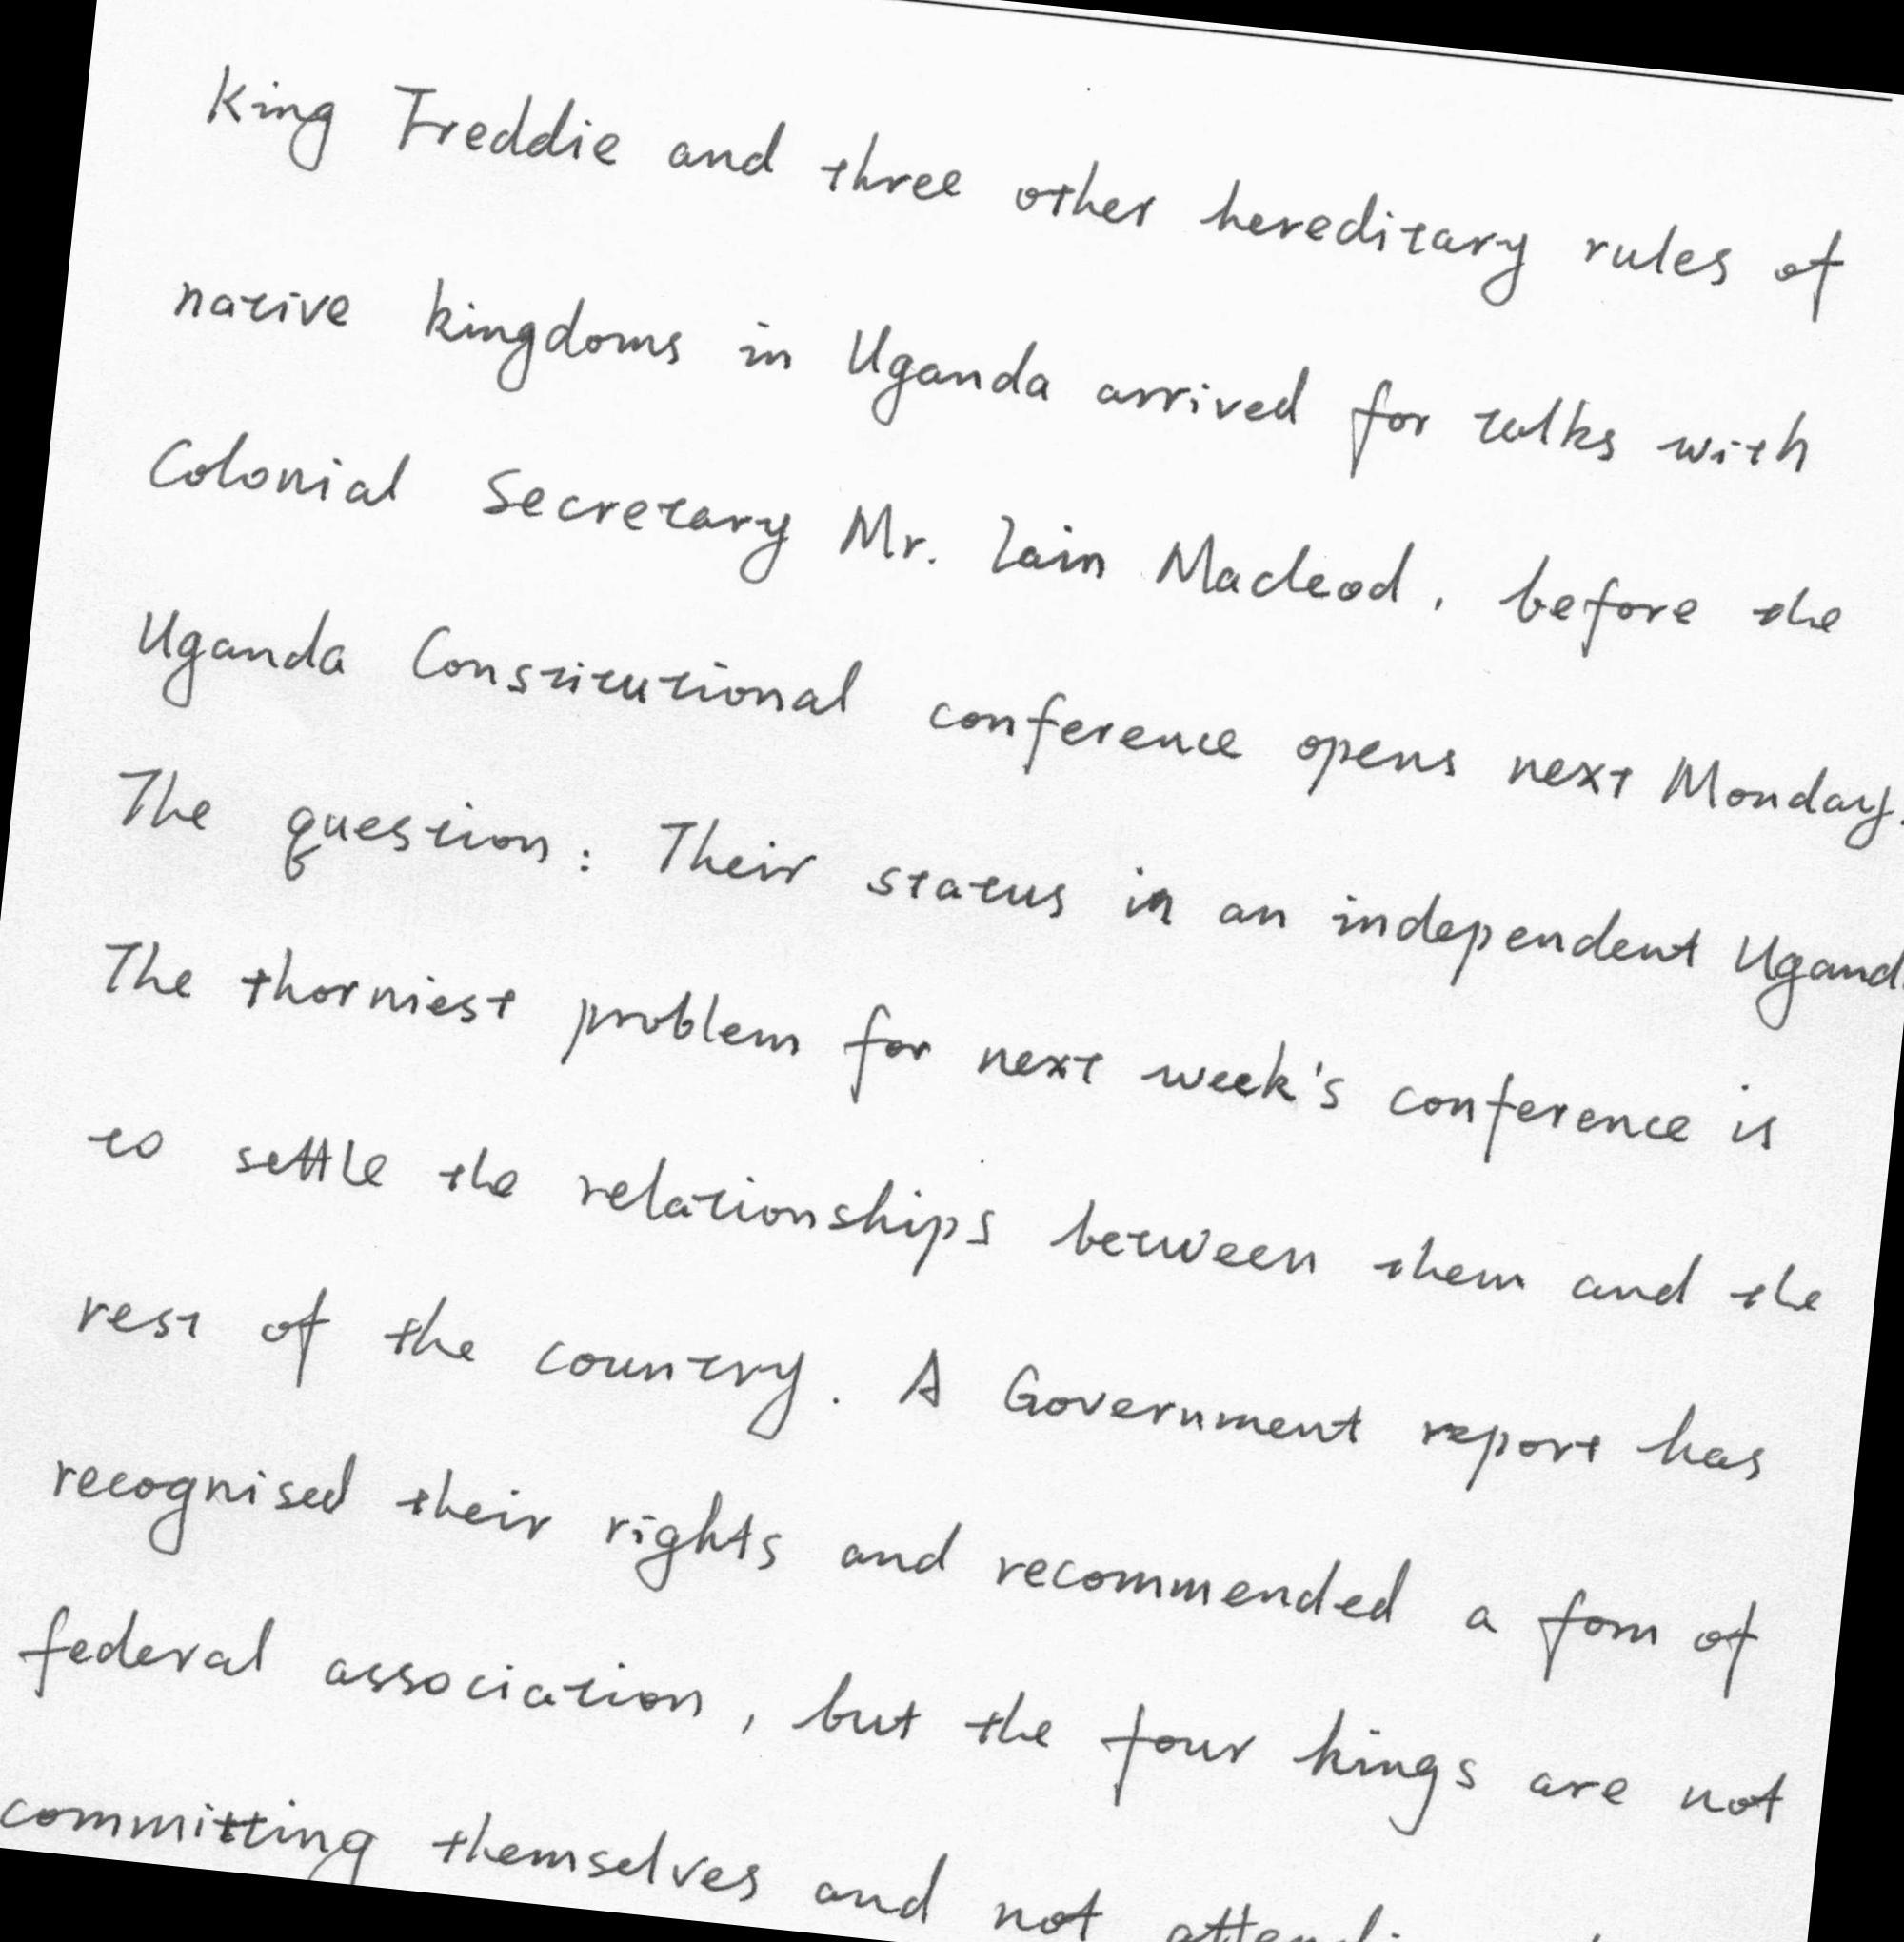 King Freddie and three other hereditary rules of
native kingdoms in Uganda arrived for talks with
Colonial Secretary Mr. Iain Macleod, before the
Uganda Constitutional conference opens next Monday.
The question: Their status in an independent
The thorniest problem for next week's conference is
to settle the relationships between them and the
rest of the country. A Government report has
recognised their rights and recommended a fom of
federal association, but the four kings are not
committing themselves and not